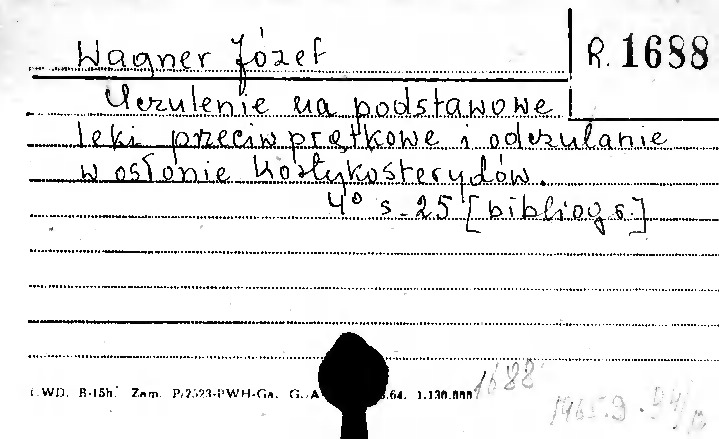 Wagner Józef
R. 1688
Uczulenie na podstawowe
leki przeciwprątkowe i odczulanie
w osłonie kortykosterydów.
4° s. 25 [bibliogr.]
WD. R-15h. Zam. P/2523-PWH-Ga. G. .64. 1.130.000
1688
1965.9